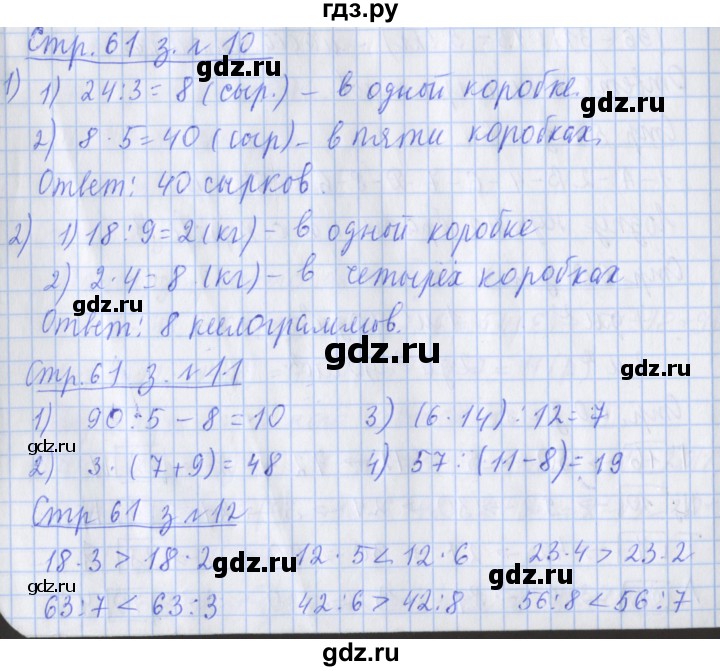 гдз.ру
Стр. 61 з. №10
1) 1) 24:3=8 (сыр.) – в одной коробке.
2) 8·5=40 (сыр) – в пяти коробках.
Ответ: 40 сырков.
2) 1) 18:9=2 (кг) – в одной коробке
2) 2·4=8 (кг) – в четырёх коробках
Ответ: 8 килограммов.
Стр. 61 з. №11
1) 90:5–8=10 3) (6·14):12=7
2) 3·(7+9)=48 4) 57:(11–8)=19
Стр 61 з №12
18·3>18·2 12·5<12·6 23·4>23·2
63:7<63:3 42:6>42:8 56:8<56:7
gdz.ru
gdz.ru
gdz.ru
gdz.ru
gdz.ru
gdz.ru
gdz.ru
gdz.ru
gdz.ru
gdz.ru
gdz.ru
gdz.ru
gdz.ru
gdz.ru